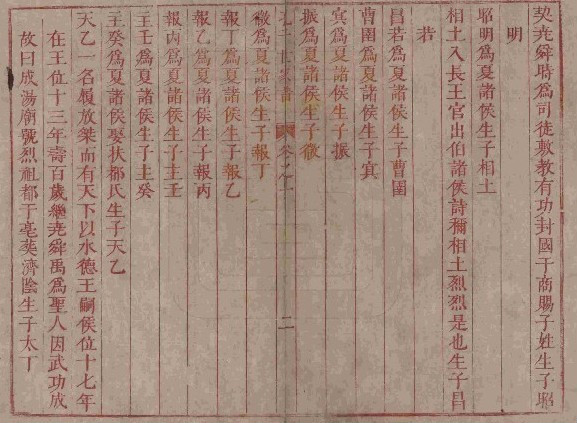 契堯舜時爲司徒敷教有功封國于商賜子姓生子昭
明
昭明爲夏諸侯生子相土
相土入長王官出伯諸侯詩稱相土烈烈是也生子昌
若
昌若爲夏諸侯生子曹圉
曹圉爲夏諸侯生子㝠
㝠爲夏諸侯生子振
振爲夏諸侯生子微
卷之一
二
微爲夏諸侯生子報丁
報丁爲夏諸侯生子報乙
報乙爲夏諸侯生子報丙
報丙爲夏諸侯生子主壬
主壬爲夏諸侯生子主癸
主癸爲夏諸侯娶扶都氏生子天乙
天乙一名履放桀而有天下以水德王嗣侯位十七年
在王位十三年壽百歲繼堯舜禹爲聖人因武功成
故曰成湯廟號烈祖都于亳葬濟陰生子太丁